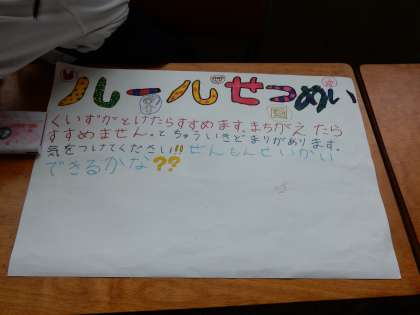 ルールせつめい
くいずがとけたらすすめます。まちがえたら
すすめません。とちゅういきどまりがあります。
気をつけてください!!ぜんもんせいかい
できるかな??